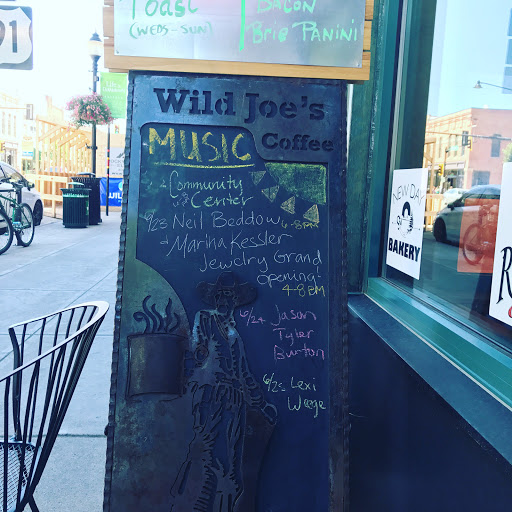 Toast
(WEDS-SUN)
BACON
Brie PANINI
91
Wild Joe's
Coffee
MUSIC
Community
Center
6/23 Neil Beddow 6-8PM
Marina Kessler
Jewelry Grand
opening!
4-8PM
6/24 Jason
Tyler
Burton
6/25 Lexi
Wege
NEW DAY
BAKERY
R